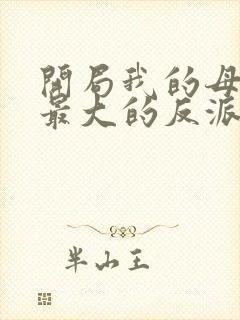 開局我的母
最大的反派
半山王